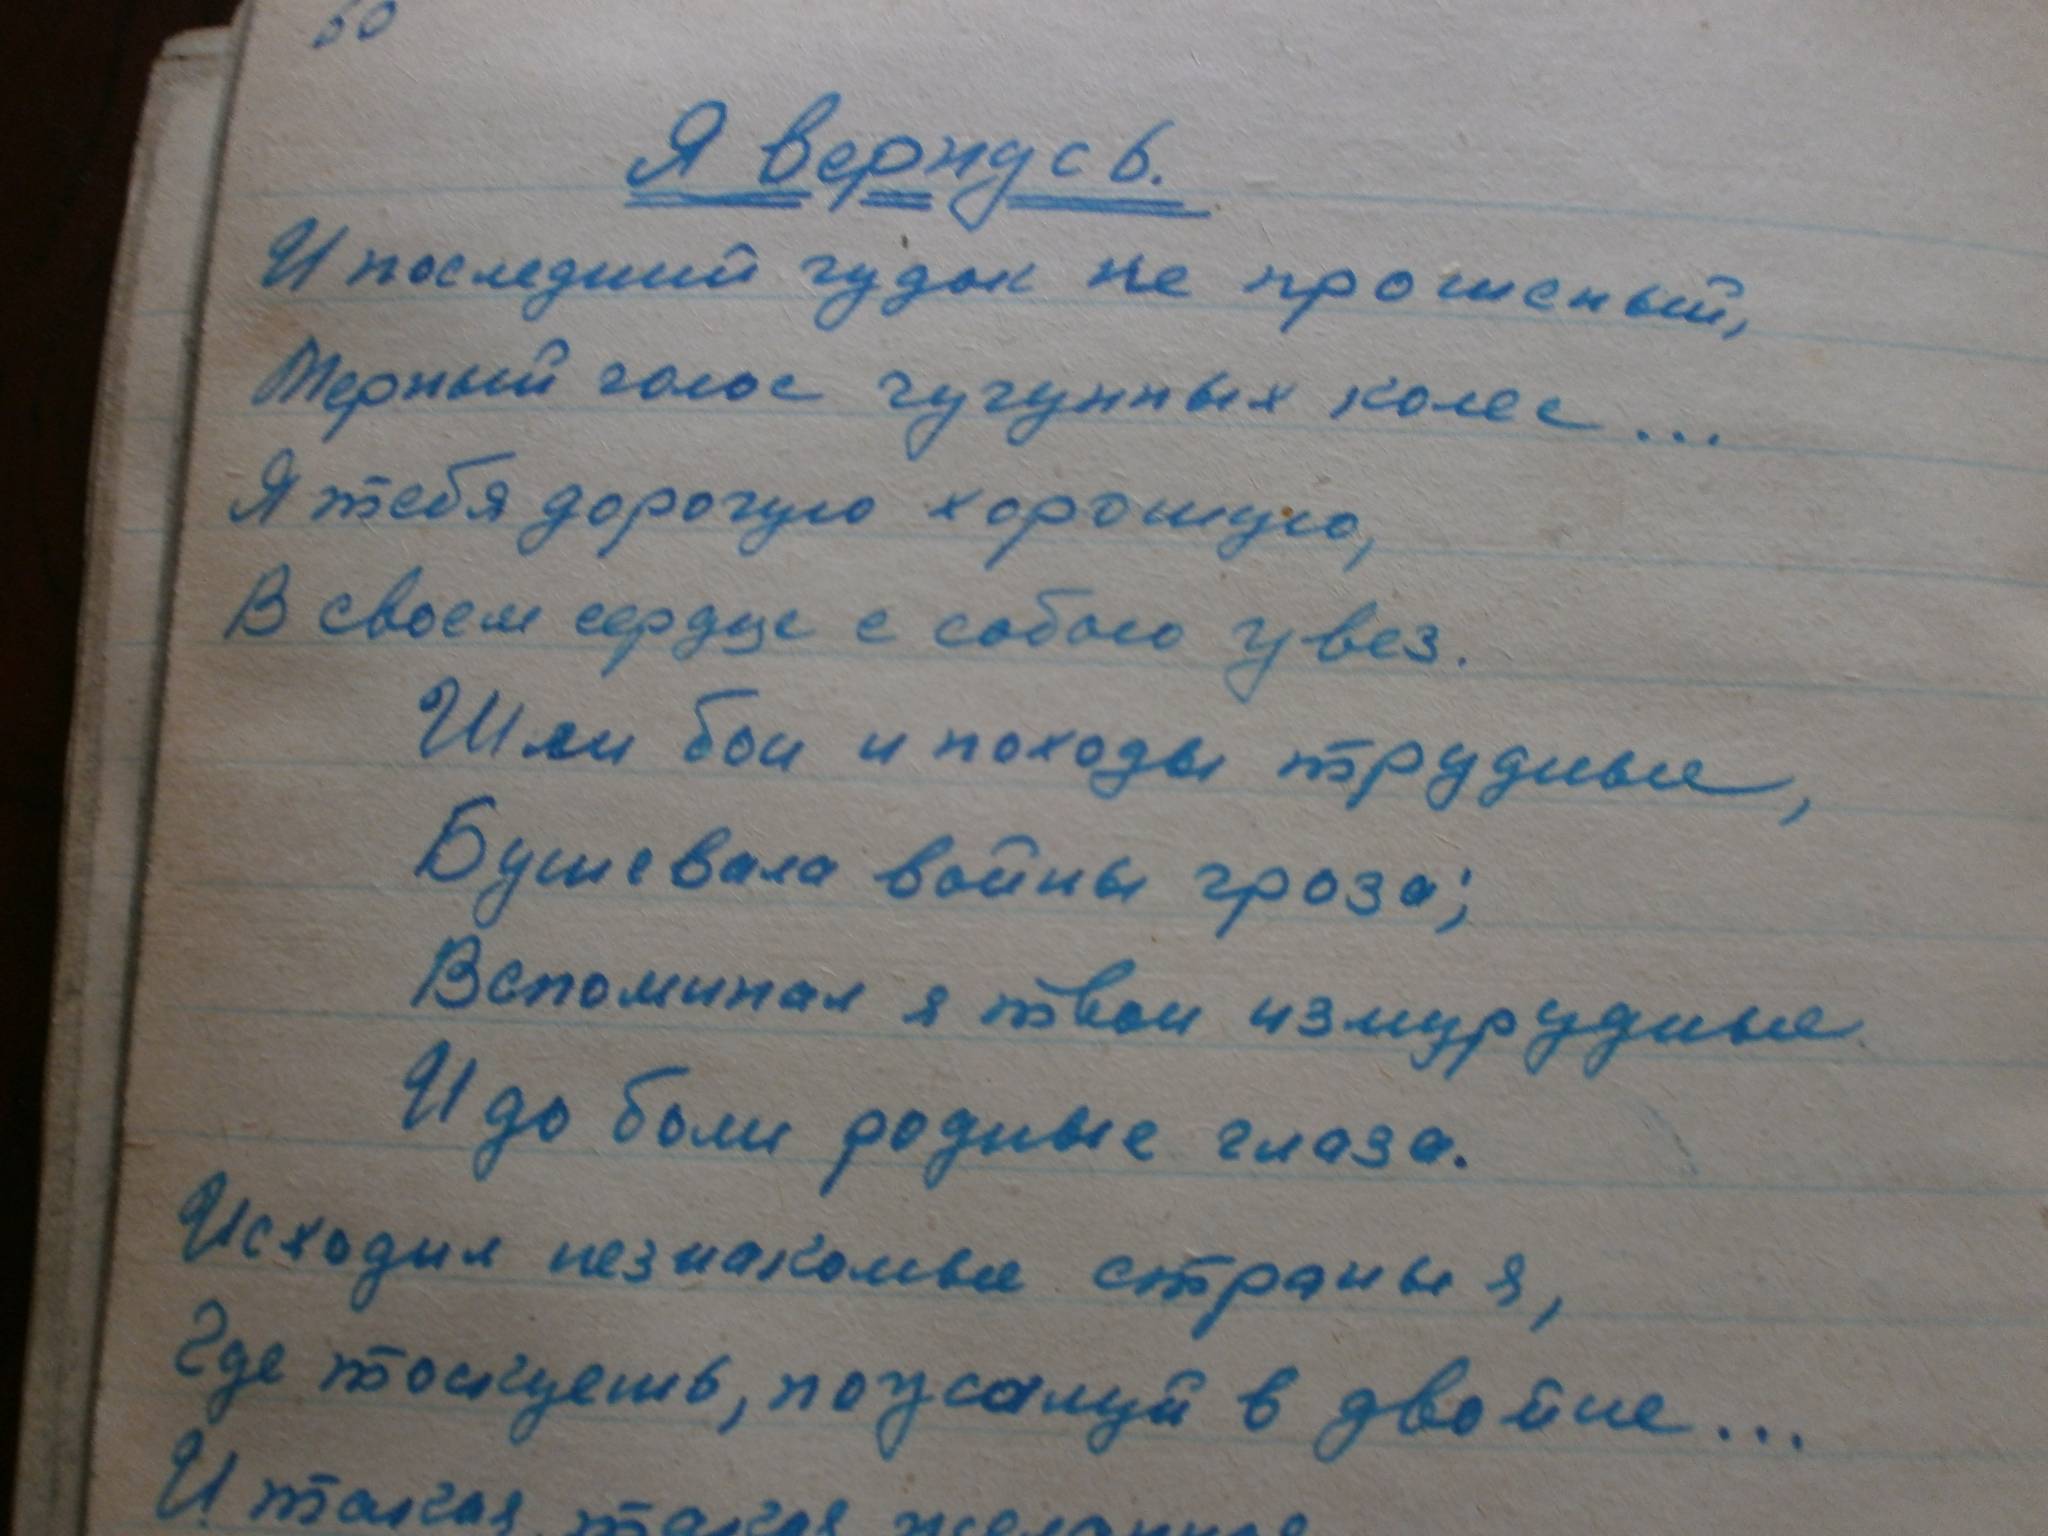 50
Я вернусь.
И последний гудок не прошеный,
Мерный голос чугунных колес...
Я тебя дорогую хорошую,
В своем сердце с собою увез.
Шли бои и походы трудные,
Бушевала войны гроза;
Вспоминал я твои изумрудные
И до боли родные глаза.
Исходил незнакомые страны я,
Где тоскуешь, пожалуй в двойне...
И такая, такая желанная